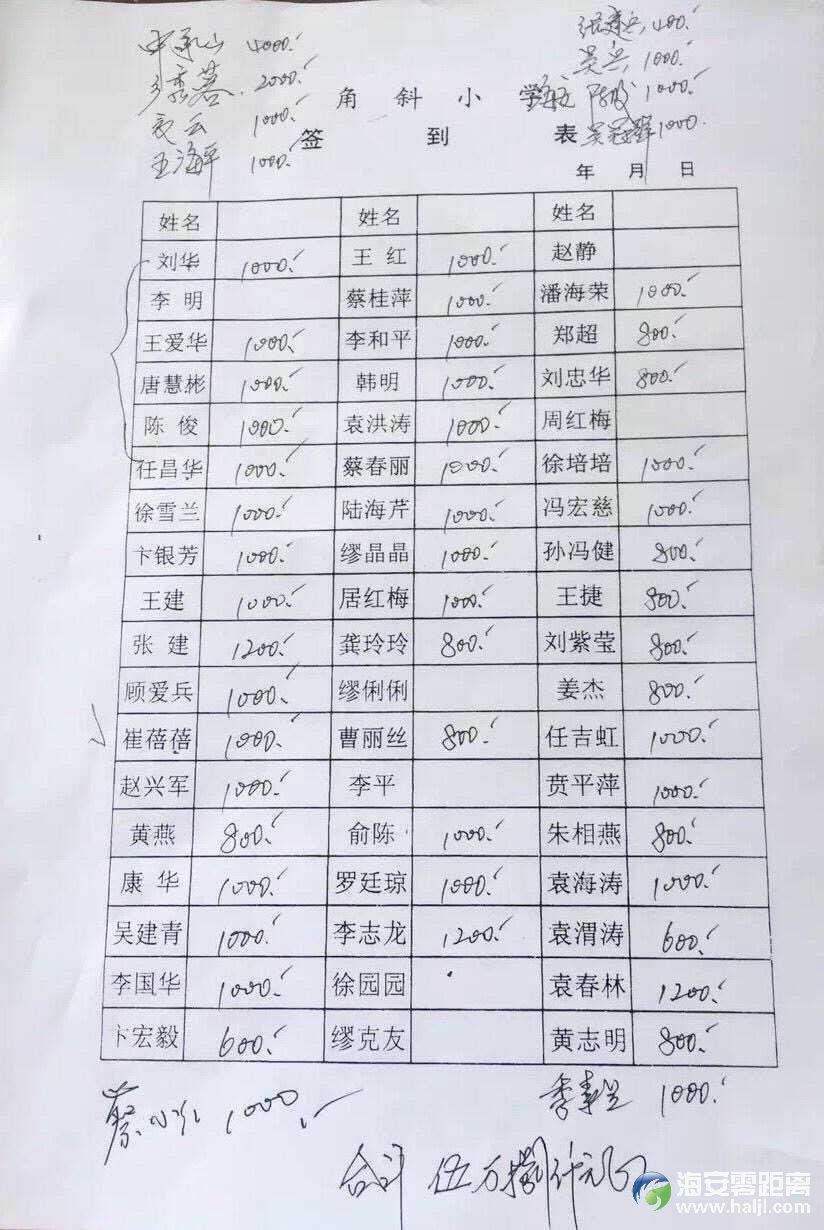 4000.
2000.
1000.
王海平 1000.
400.
吴兵 1000.
1000.
1000.
角斜小学
签到表
年 月 日
姓名 姓名 姓名
刘华 1000. 王红 1000. 赵静
李明 蔡桂萍 1000. 潘海荣 1000.
王爱华 1000. 李和平 1000. 郑超 800.
唐慧彬 1000. 韩明 1000. 刘忠华 800.
陈俊 1000. 袁洪涛 1000. 周红梅
任昌华 1000. 蔡春丽 1000. 徐培培 1000.
徐雪兰 1000. 陆海芹 1000. 冯宏慈 1000.
卞银芳 1000. 缪晶晶 1000. 孙冯健 800.
王建 1000. 居红梅 1000. 王捷 800.
张建 1200. 龚玲玲 800. 刘紫莹 800.
顾爱兵 1000. 缪俐俐 姜杰 800.
崔蓓蓓 1000. 曹丽丝 800. 任吉虹 1000.
赵兴军 1000. 李平 贲平萍 1000.
黄燕 800. 俞陈 1000. 朱相燕 800.
康华 1000. 罗廷琼 1000. 袁海涛 1000.
吴建青 1000. 李志龙 1200. 袁渭涛 600.
李国华 1000. 徐园园 袁春林 1200.
卞宏毅 600. 缪克友 黄志明 800.
1000. 1000.
合计 伍万捌仟元
海安零距离
www.haljl.com